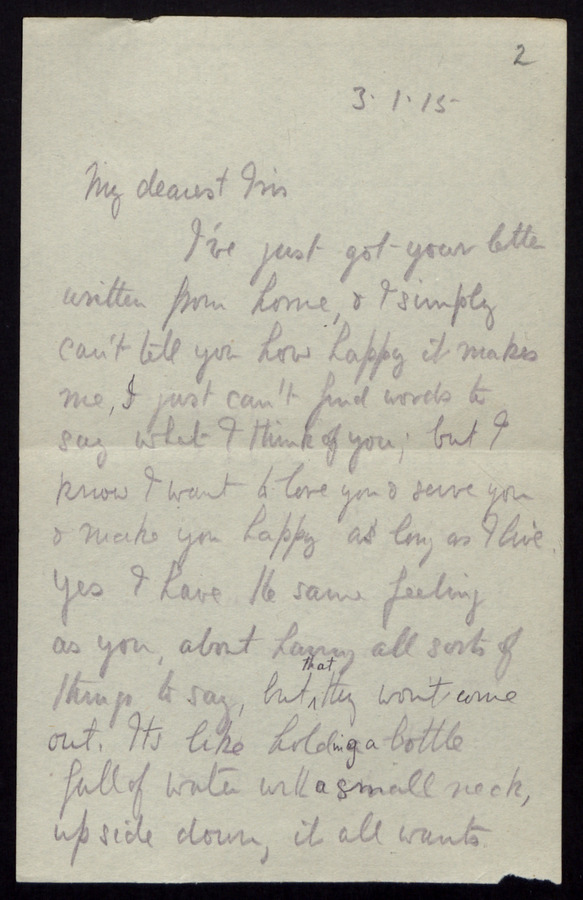 2
3. 1. 15
My dearest Iris
I've just got your letter
written from home, & I simply
can't tell you how happy it makes
me, I just can't find words to
say what I think of you; but I
know I want to love you & serve you
& make you happy as long as I live.
Yes I have the same feeling
as you, about having all sorts of
that
things to say, but ^ they won't come
out. Its like holding a bottle
full of water with a small neck,
upside down, it all wants